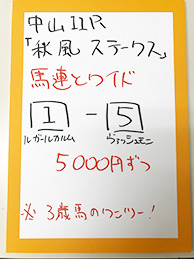 中山11R
「秋風ステークス」
馬連とワイド
1-5
ルガールカルム ヴァンシュモン
5000円ずつ
※3歳馬のワンツー!